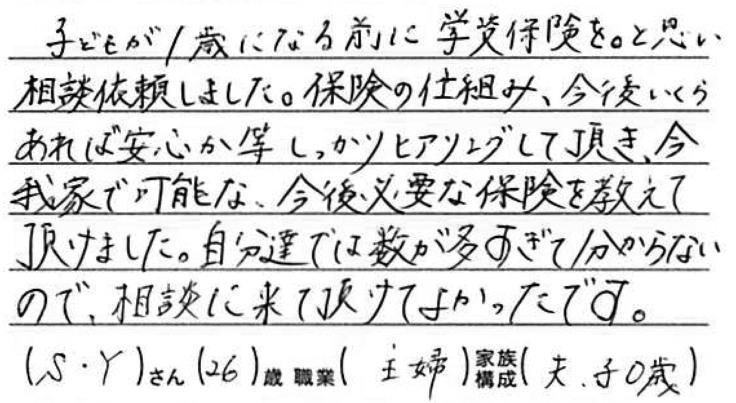 子どもが1歳になる前に学資保険を。と思い
相談依頼しました。保険の仕組み、今後いくら
あれば安心か等しっかりヒアリングして頂き、今
我家で可能な、今後必要な保険を教えて
頂けました。自分達では数が多すぎて分からない
ので、相談に来て頂けてよかったです。
(S・Y)さん(26)歳 職業(主婦)家族構成(夫、子0歳)